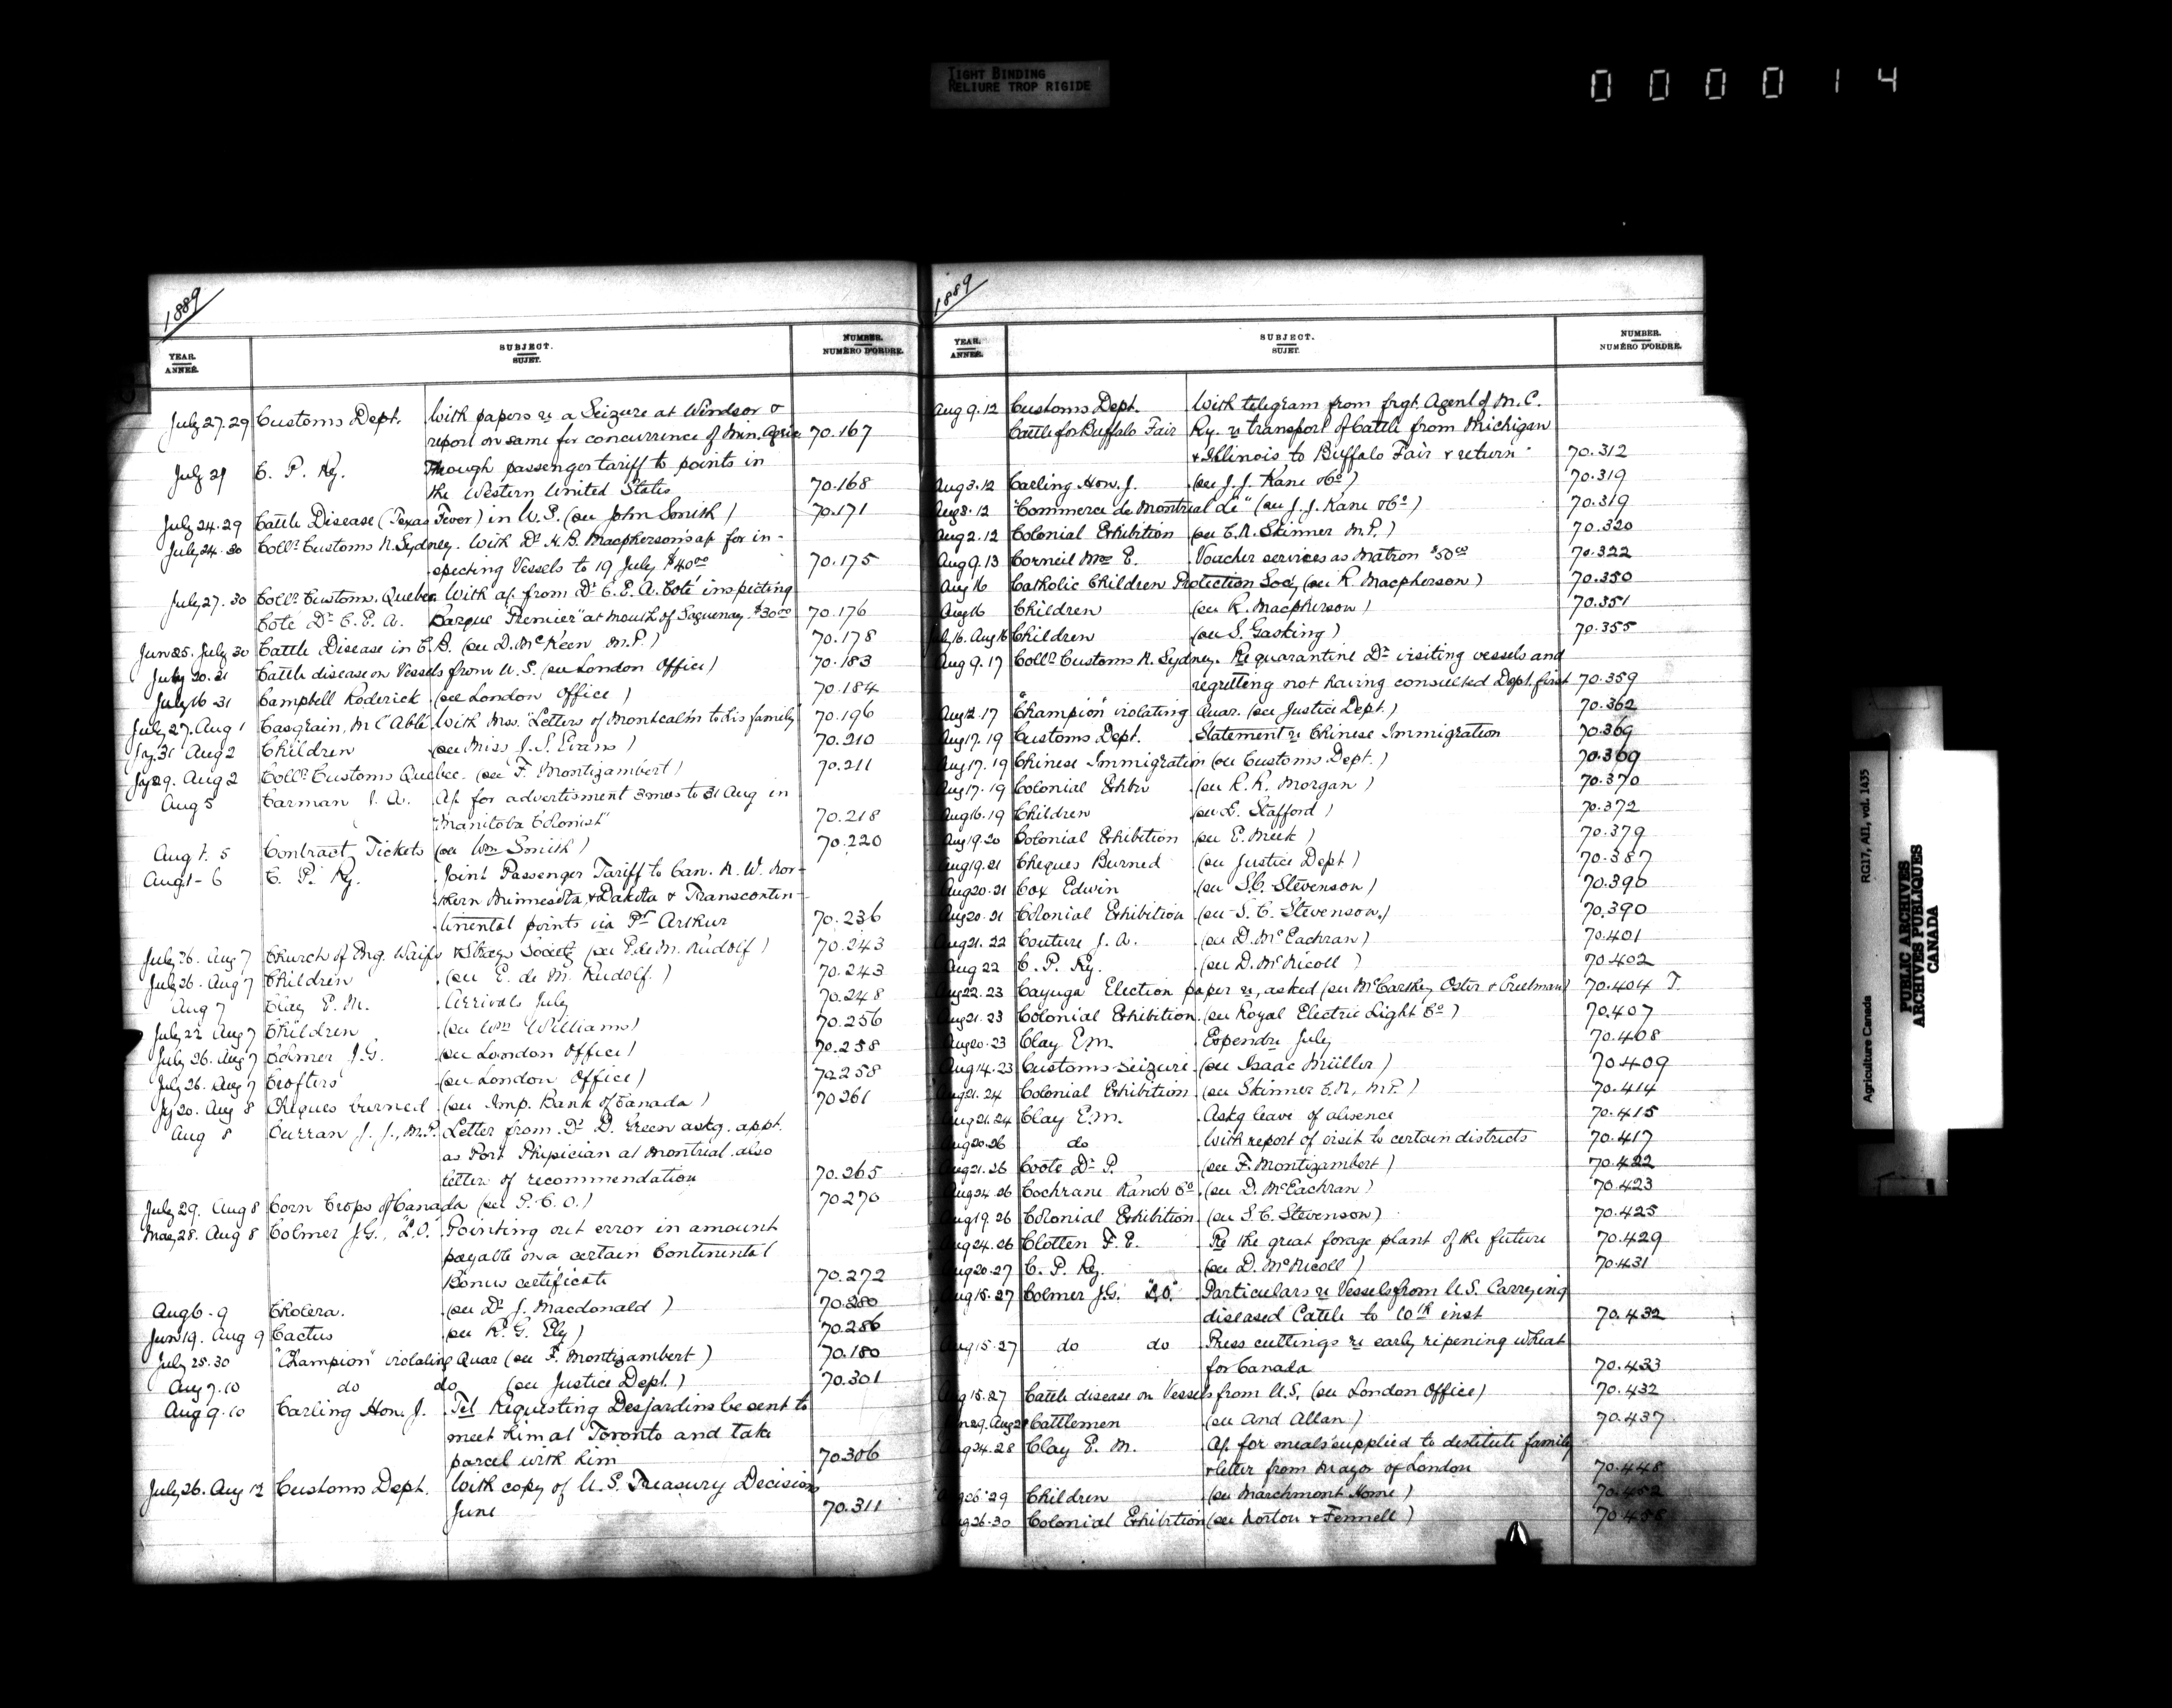 TIGHT BINDING
RELIURE TROP RIGIDE
000014
1889
YEAR. ANNÉE. SUBJECT. SUJET. NUMBER. NUMÉRO D'ORDRE.
July 27.29 Customs Dept. With papers re a Seizure at Windsor &
report on same for concurrence of Min. Agric 70.167
July 29 C. P. Ry. Through passenger tariff to points in
the Western United States 70.168
July 24.29 Cattle Disease (Texas Fever) in U.S. (see John Smith) 70.171
July 24.30 Collr Customs N. Sydney. With Dr H. B. Macpherson's a/c for in-
specting Vessels to 19 July $40.00 70.175
July 27.30 Collr Customs. Quebec With a/c from Dr C. E. A. Coté inspecting
Coté Dr C. E. A. Barque "Premier" at mouth of Saguenay $30.00 70.176
Jun 25. July 30 Cattle Disease in C.B. (see D. McKeen M.P.) 70.178
July 20.31 Cattle disease on Vessels from U.S. (see London Office) 70.183
July 16-31 Campbell Roderick (see London Office) 70.184
July 27. Aug 1 Casgrain, M. l'Abbé With Mss. "Letters of Montcalm to his family" 70.196
Jy. 31 Aug 2 Children (see Miss J. S. Evans) 70.210
Jy 29. Aug 2 Collr Customs Quebec. (see F. Montizambert) 70.211
Aug 5 Carman J. A. A/c for advertisment 3 mos to 31 Aug in
"Manitoba Colonist" 70.218
Aug 1. 5 Contract Tickets (see Wm Smith) 70.220
Aug 1-6 C. P. Ry. Joint Passenger Tariff to Can. N. W. Nor-
thern Minnesota, & Dakota & Transcontin-
tinental points via Pt Arthur 70.236
July 26. Aug 7 Church of Eng. Waifs & Strays Society (see E. de M. Rudolf) 70.243
July 26. Aug 7 Children (see E. de M. Rudolf.) 70.243
Aug 7 Clay E. M. Arrivals July 70.248
July 22 Aug 7 Children (see Wm Williams) 70.256
July 26. Aug 7 Colmer J.G. (see London Office) 70.258
July 26. Aug 7 Crofters (see London Office) 70258
Jy 20. Aug 8 Cheques burned (see Imp. Bank of Canada) 70261
Aug 8 Curran J. J., M.P. Letter from Dr D. Green askg. appt.
as Port Physician at Montreal. also
letter of recommendation 70.265
July 29. Aug 8 Corn Crops of Canada (see P. C. O.) 70270
May 28. Aug 8 Colmer J.G., "L.O." Pointing out error in amount
payable on a certain Continental
Bonus certificate 70.272
Aug 6-9 Cholera. (see Dr J. Macdonald) 70.280
Jun 19. Aug 9 Cactus (see R. G. Ely) 70.286
July 25.30 "Champion" violating Quar (see F. Montizambert) 70.180
Aug 7.10 do do (see Justice Dept.) 70.301
Aug 9.10 Carling Hon. J. Tel Requesting Desjardins be sent to
meet him at Toronto and take
parcel with him 70.306
July 26. Aug 12 Customs Dept. With copy of U. S. Treasury Decisions
June 70.311
1889
YEAR. ANNÉE. SUBJECT. SUJET. NUMBER. NUMÉRO D'ORDRE.
Aug 9.12 Customs Dept. With telegram from frgt. Agent of M. C.
Cattle for Buffalo Fair Ry. re transport of Cattle from Michigan
& Illinois to Buffalo Fair & return 70.312
Aug 3.12 Carling Hon. J. (see J. J. Kane & Co) 70.319
Aug 3.12 "Commerce de Montreal Le" (see J. J. Kane & Co) 70.319
Aug 2.12 Colonial Exhibition (see C. N. Skinner M.P.) 70.320
Aug 9.13 Corneil Mrs E. Voucher services as Matron $50.00 70.322
Aug 16 Catholic Children Protection Socy (see R. Macpherson) 70.350
Aug 16 Children (see R. Macpherson) 70.351
July 16. Aug 16 Children (see S. Gasking) 70.355
Aug 9.17 Collr Customs N. Sydney. Re quarantine Dr visiting vessels and
regretting not having consulted Dept. first 70.359
Aug 12.17 "Champion" violating Quar. (see Justice Dept.) 70.362
Aug 17.19 Customs Dept. Statement re Chinese Immigration 70.369
Aug 17.19 Chinese Immigration (see Customs Dept.) 70.369
Aug 17.19 Colonial Exhbn (see R. R. Morgan) 70.370
Aug 16.19 Children (see E. Stafford) 70.372
Aug 19.20 Colonial Exhibition (see E. Meek) 70.379
Aug 19.21 Cheques Burned (see Justice Dept) 70.387
Aug 20.21 Cox Edwin (see S.C. Stevenson) 70.390
Aug 20.21 Colonial Exhibition (see S. C. Stevenson.) 70.390
Aug 21.22 Couture J. A. (see D. McEachran) 70.401
Aug 22 C. P. Ry. (see D. McNicoll) 70.402
Aug 22.23 Cayuga Election paper re, asked (see McCarthy, Osler & Creelman) 70.404 T.
Aug 21.23 Colonial Exhibition. (see Royal Electric Light Co) 70.407
Aug 20.23 Clay E.M. Expendre July 70.408
Aug 14.23 Customs Seizure (see Isaac Müller) 70409
Aug 21.24 Colonial Exhibition (see Skinner C. N., M.P.) 70.414
Aug 21.24 Clay E.M. Askg leave of absence 70.415
Aug 20.26 do With report of visit to certain districts 70.417
Aug 21.26 Coote Dr P. (see F. Montizambert) 70.422
Aug 24.26 Cochrane Ranch Co (see D. McEachran) 70.423
Aug 19.26 Colonial Exhibition (see S. C. Stevenson) 70.425
Aug 24.26 Clotten F. E. Re the great forage plant of the future 70.429
Aug 20.27 C. P. Ry. (see D. McNicoll) 70.431
Aug 15.27 Colmer J.G. "L.O." Particulars re Vessels from U.S. Carrying
diseased Cattle to 10th inst 70.432
Aug 15.27 do do Press cuttings re early ripening wheat
for Canada 70.433
Aug 15.27 Cattle disease on Vessels from U.S. (see London Office) 70.432
Jun 29. Aug 28 Cattlemen (see And Allan) 70.437
Aug 24.28 Clay E. M. A/c for meals supplied to destitute family
& letter from Mayor of London 70.448
Aug 26 29 Children (see Marchmont Home) 70.452
Aug 26.30 Colonial Exhibition (see Norton & Fennell) 70.458
Agriculture Canada RG17, AII, vol. 1435
PUBLIC ARCHIVES
ARCHIVES PUBLIQUES
CANADA